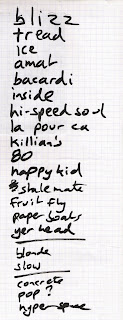 blizz
tread
ice
amat
bacardi
inside
hi-speed soul
la pour ca
killian's
80
happy kid
stalemate
fruit fly
paper boats
yer head
blonde
slow
concrete
pop?
hyperspace